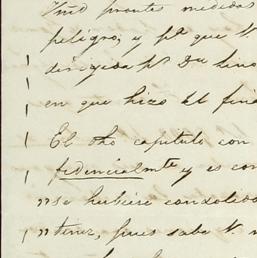 Vmd prontas medidas
peligro; y pa. que V.
dirigida pr. Dn
en que hizo el fina
El dho capitulo con
fidencialmte y es con
"se hubiese condolido
"tenez, pues sabe V.